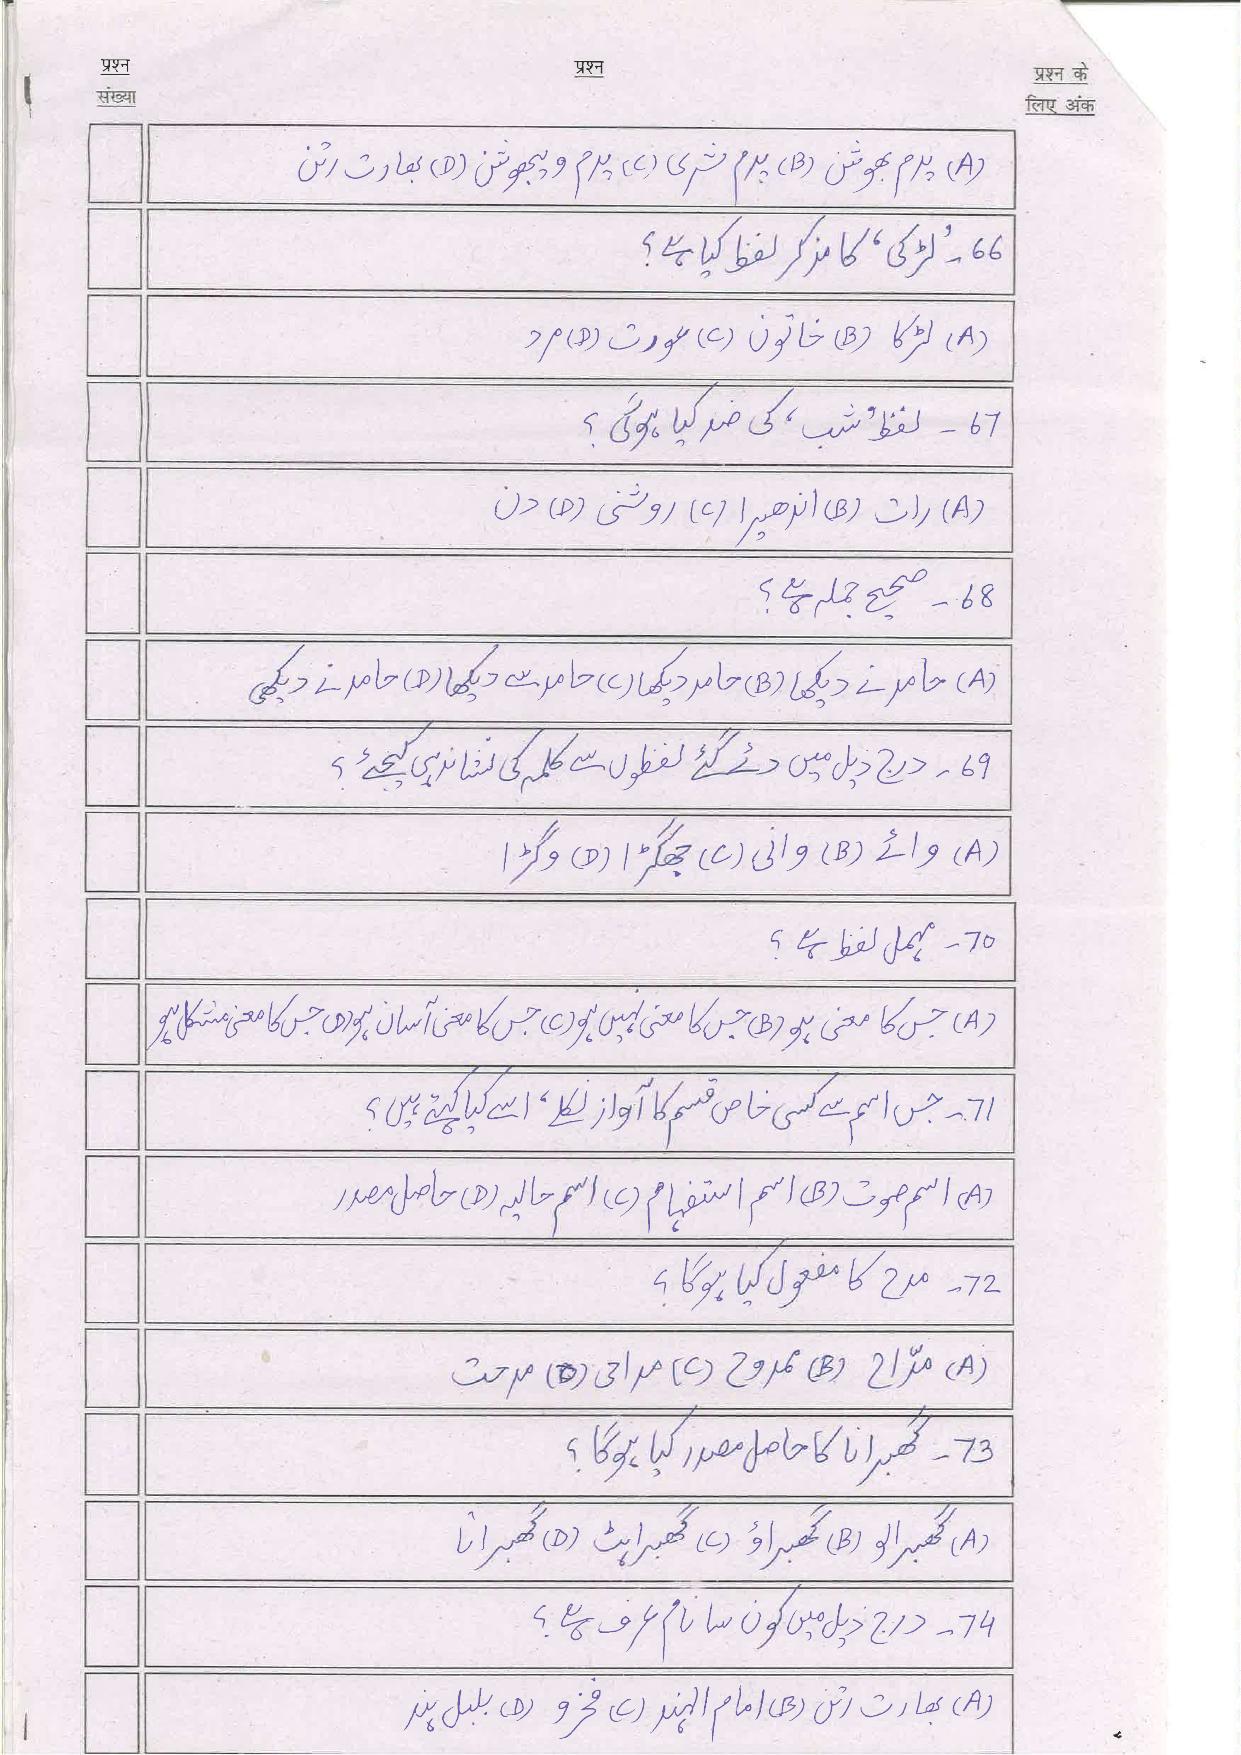 प्रश्न
संख्या
प्रश्न
प्रश्न के
लिए अंक
(A) پدم بھوشن (B) پدم شری (C) پدم ویبھوشن (D) بھارت رتن
66۔ 'لڑکی' کا مذکر لفظ کیا ہے؟
(A) لڑکا (B) خاتون (C) عورت (D) مرد
67۔ لفظ 'شب' کی ضد کیا ہوگی؟
(A) رات (B) اندھیرا (C) روشنی (D) دن
68۔ صحیح جملہ ہے؟
(A) حامد نے دیکھا (B) حامد دیکھا (C) حامد سے دیکھا (D) حامد نے دیکھی
69۔ درج ذیل میں دئے گئے لفظوں سے کلمہ کی نشاندہی کیجئے؟
(A) وائے (B) وانی (C) جھگڑا (D) وگڑا
70۔ مہمل لفظ ہے؟
(A) جس کا معنی ہو (B) جس کا معنی نہیں ہو (C) جس کا معنی آسان ہو (D) جس کا معنی مشکل ہو
71۔ جس اسم سے کسی خاص قسم کا آواز نکلے، اسے کیا کہتے ہیں؟
(A) اسم صوت (B) اسم استفہام (C) اسم حالیہ (D) حاصل مصدر
72۔ مدح کا مفعول کیا ہوگا؟
(A) مدّاح (B) ممدوح (C) مداحی (D) مدحت
73۔ گھبرانا کا حاصل مصدر کیا ہوگا؟
(A) گھبرالو (B) گھبراؤ (C) گھبراہٹ (D) گھبراتا
74۔ درج ذیل میں کون سا نام عرف ہے؟
(A) بھارت رتن (B) امام الہند (C) فخرو (D) بلبل ہند